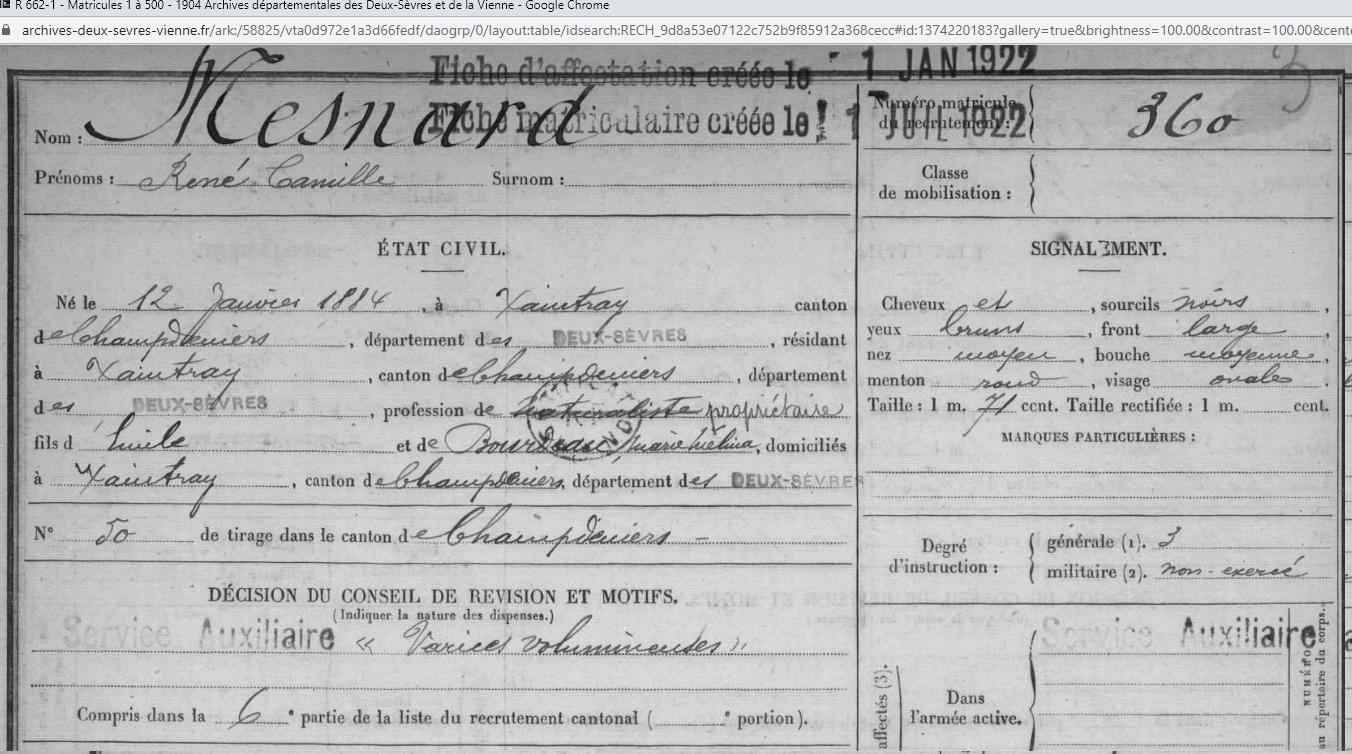 R 662-1 - Matricules 1 à 500 - 1904 Archives départementales des Deux-Sèvres et de la Vienne - Google Chrome
archives-deux-sevres-vienne.fr/ark:/58825/vta0d972e1a3d66fedf/daogrp/0/layout:table/idsearch:RECH_9d8a53e07122c752b9f85912a368cecc#id:1374220183?gallery=true&brightness=100.00&contrast=100.00&cente
Fiche d'affectation créée le 1 JAN 1922
Fiche matriculaire créée le 1 JUIL 1922
Nom : Mesnard
Prénoms : René Camille Surnom :
Numéro matricule du recrutement : 360
Classe de mobilisation :
ÉTAT CIVIL.
Né le 12 Janvier 1884, à Xaintray canton
de Champdeniers, département des DEUX-SÈVRES, résidant
à Xaintray, canton de Champdeniers, département
des DEUX-SÈVRES, profession de propriétaire
fils d et de Marie, domiciliés
à Xaintray, canton de Champdeniers, département des DEUX-SÈVRES
N° 50 de tirage dans le canton de Champdeniers -
SIGNALEMENT.
Cheveux et, sourcils noirs,
yeux bruns, front large,
nez moyen, bouche moyenne,
menton rond, visage ovale.
Taille : 1 m. 71 cent. Taille rectifiée : 1 m. cent.
MARQUES PARTICULIÈRES :
Degré d'instruction :
générale (1). 3
militaire (2). non-exercé
DÉCISION DU CONSEIL DE REVISION ET MOTIFS.
(Indiquer la nature des dispenses.)
Service Auxiliaire « Varices volumineuses »
Compris dans la 6e partie de la liste du recrutement cantonal ( e portion).
affectés (3).
Dans l'armée active.
Service Auxiliaire
NUMÉRO
au répertoire du corps.